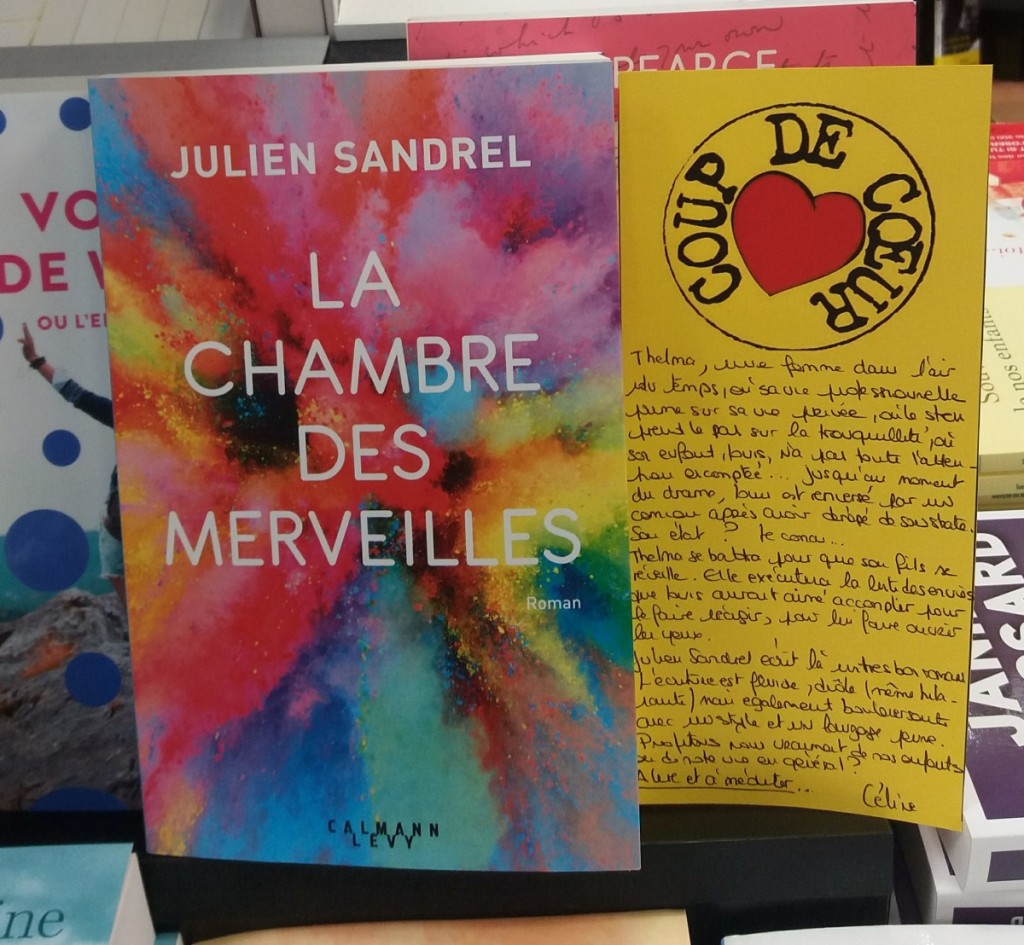 PEARCE
JULIEN SANDREL
LA
CHAMBRE
DES
MERVEILLES
Roman
CALMANN
LEVY
COUP DE CŒUR
Thelma, une femme dans l'air
du temps, où sa vie professionnelle
prime sur sa vie privée, où le stress
prend le pas sur la tranquillité, où
son enfant, Louis, n'a pas toute l'atten-
tion escomptée... jusqu'au moment
du drame, Louis est renversé par un
camion après avoir dérapé de son skate.
Son état ? Le coma...
Thelma se battra pour que son fils se
réveille. Elle exécutera la liste des envies
que Louis aurait aimé accomplir pour
le faire réagir, pour lui faire ouvrir
les yeux.
Julien Sandrel écrit là un très bon roman
L'écriture est fluide, drôle (même hila-
rante) mais également bouleversante
avec un style et un langage jeune.
Profitons nous vraiment de nos enfants
ou de notre vie en général ?
A lire et à méditer...
Céline
VO
DE V
OU L'E
à nos enfants
JANI
ine